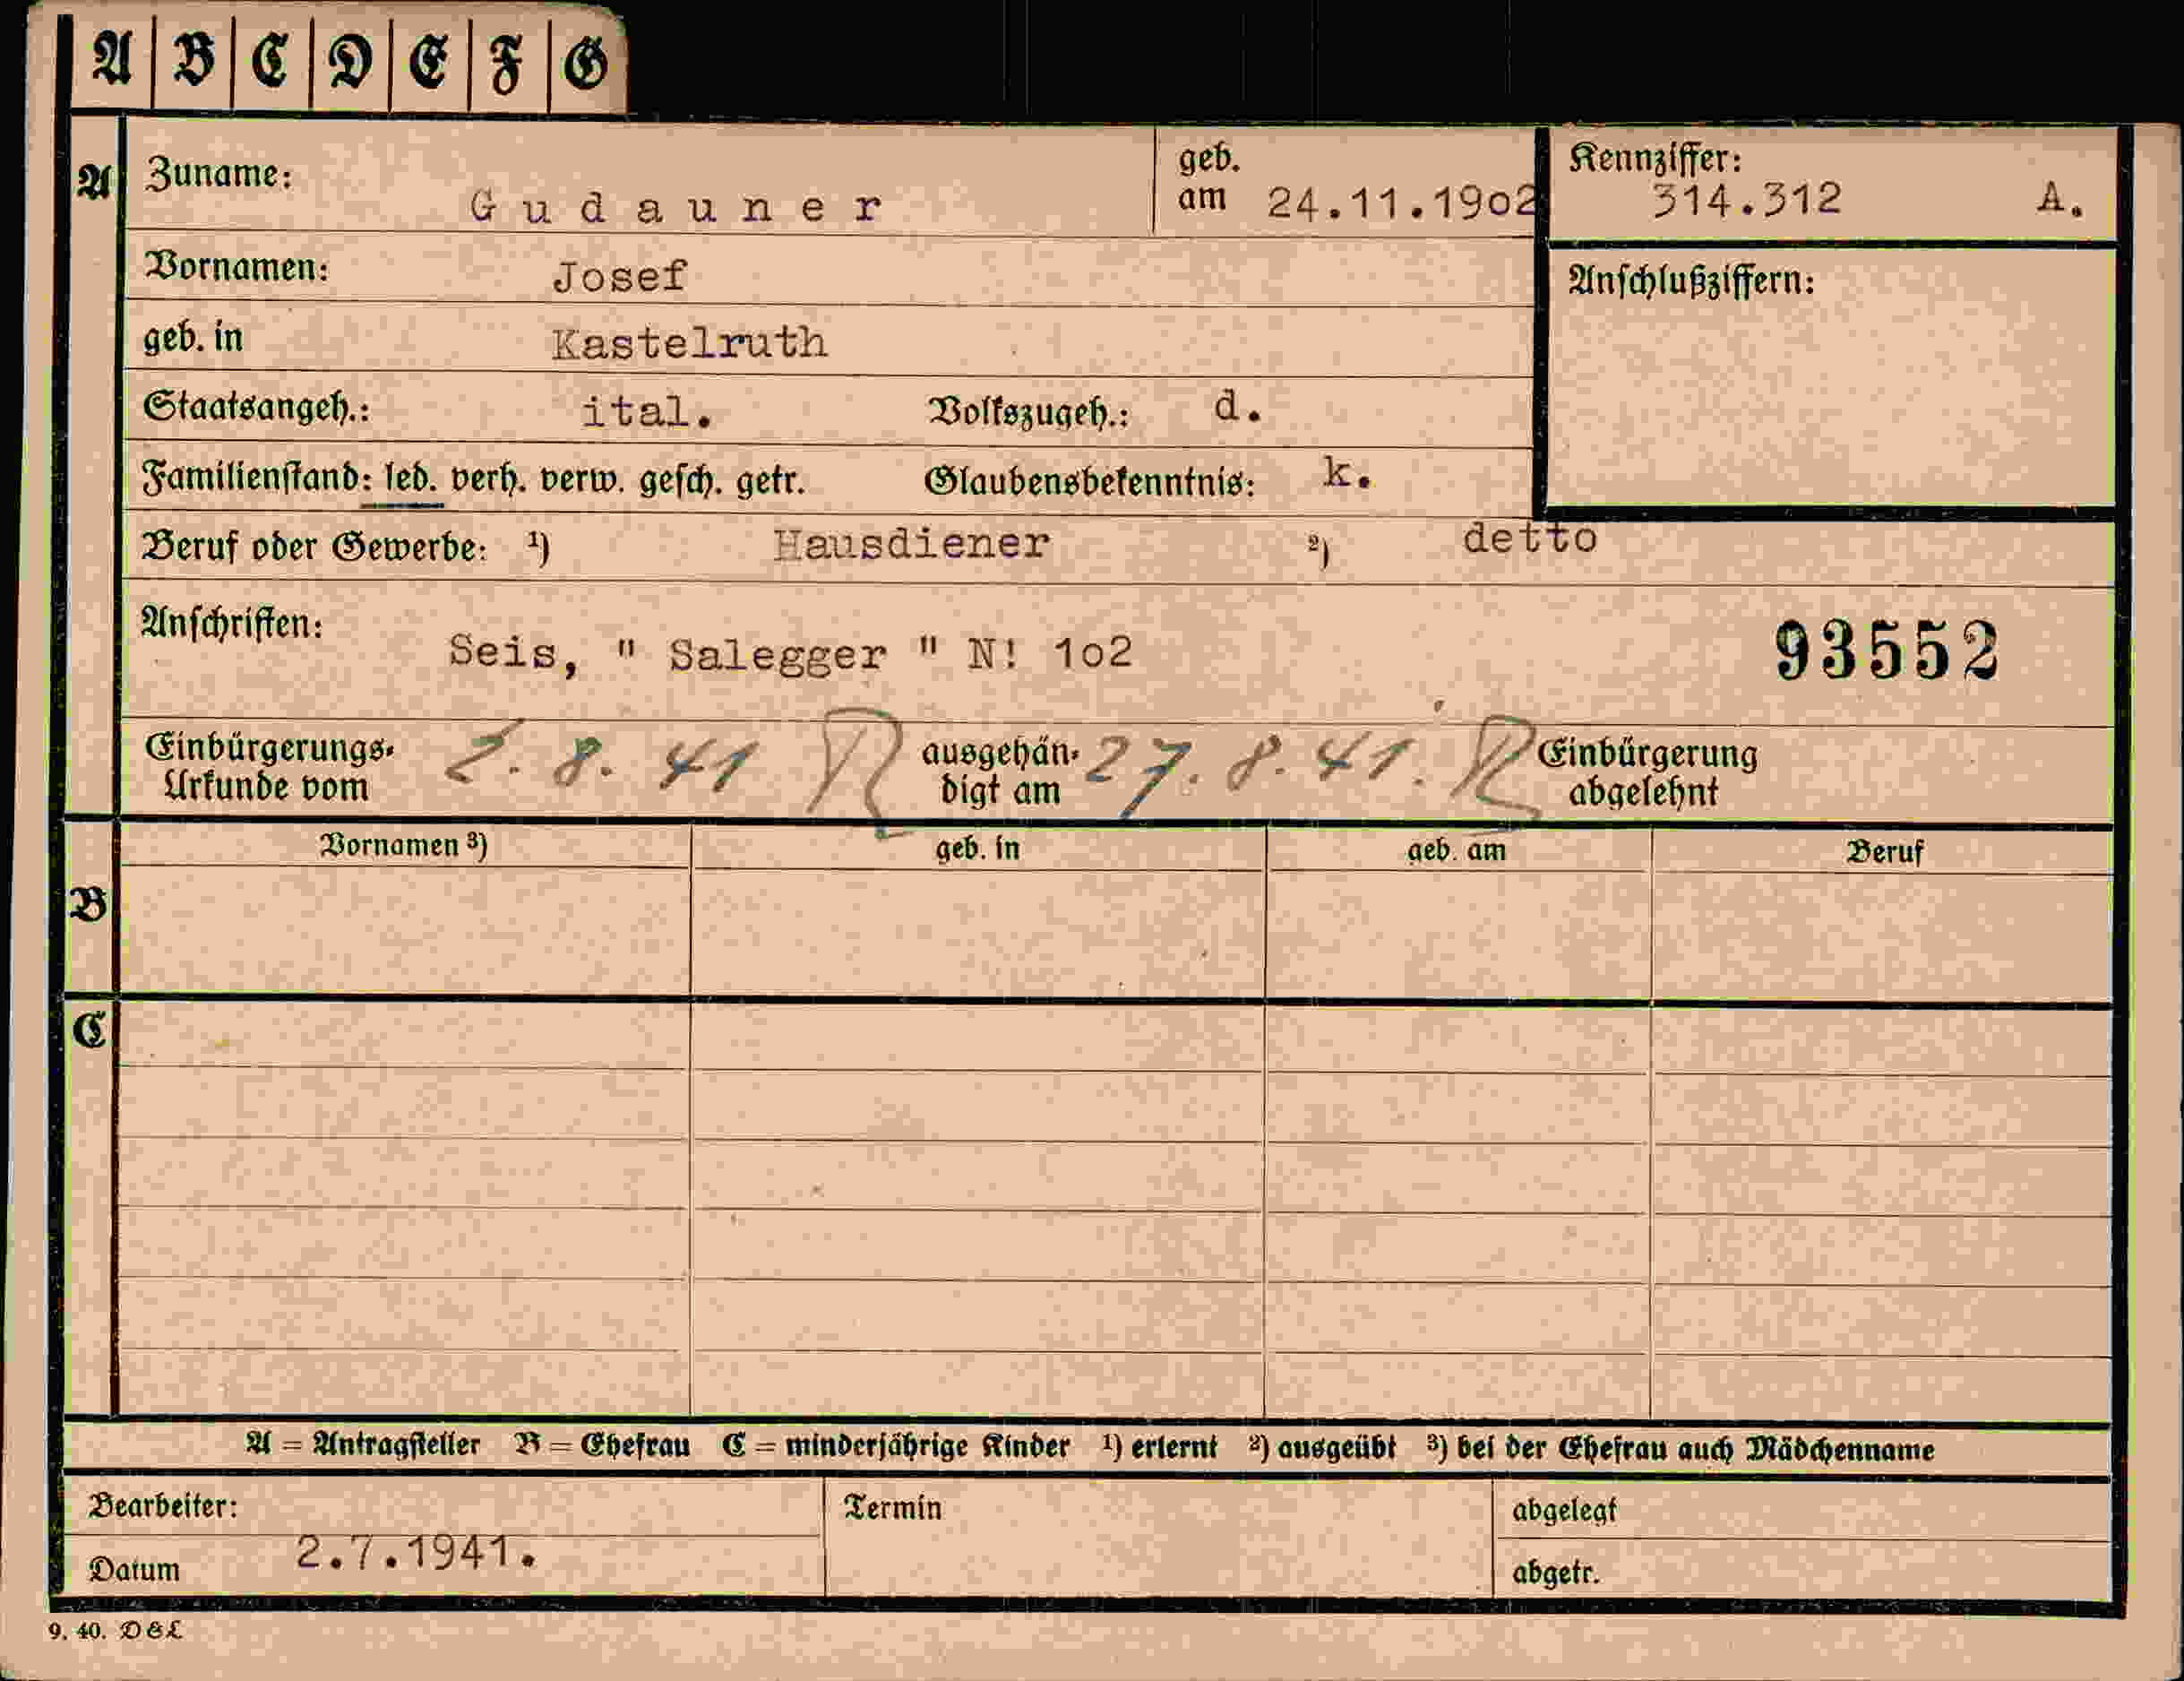 A B C D E F G
A Zuname: Gudauner geb. am 24.11.19o2 Kennziffer: 314.312 A.
Vornamen: Josef Anschlußziffern:
geb. in Kastelruth
Staatsangeh.: ital. Volkszugeh.: d.
Familienstand: led. verh. verw. gesch. getr. Glaubensbekenntnis: k.
Beruf oder Gewerbe: ¹) Hausdiener ²) detto
Anschriften: Seis, " Salegger " N! 1o2 93552
Einbürgerungs-Urkunde vom 2.8.41 ausgehän-digt am 27.8.41. Einbürgerung abgelehnt
Vornamen ³) geb. in geb. am Beruf
B
C
A = Antragsteller B = Ehefrau C = minderjährige Kinder ¹) erlernt ²) ausgeübt ³) bei der Ehefrau auch Mädchenname
Bearbeiter: Termin abgelegt
Datum 2.7.1941. abgetr.
9. 40. D & L